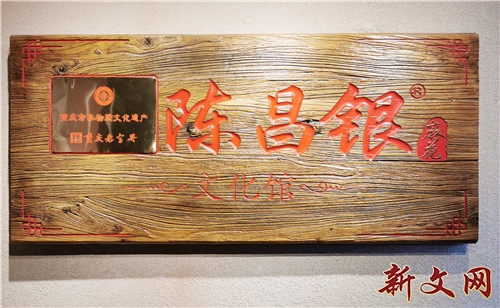 重庆市非物质文化遗产
重庆老字号
陈昌银®
麻花
文化馆
新文网